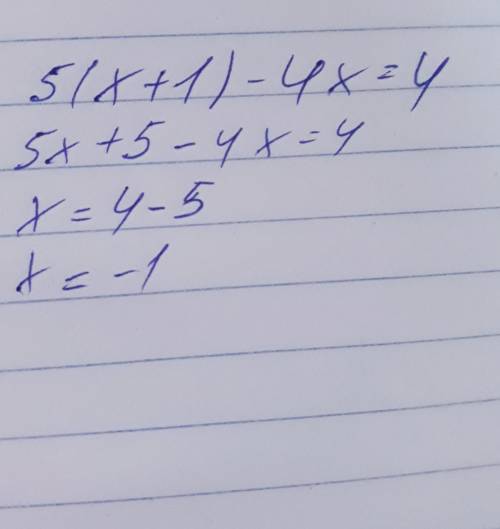 5(x+1)-4x=4
5x+5-4x=4
x=4-5
x=-1